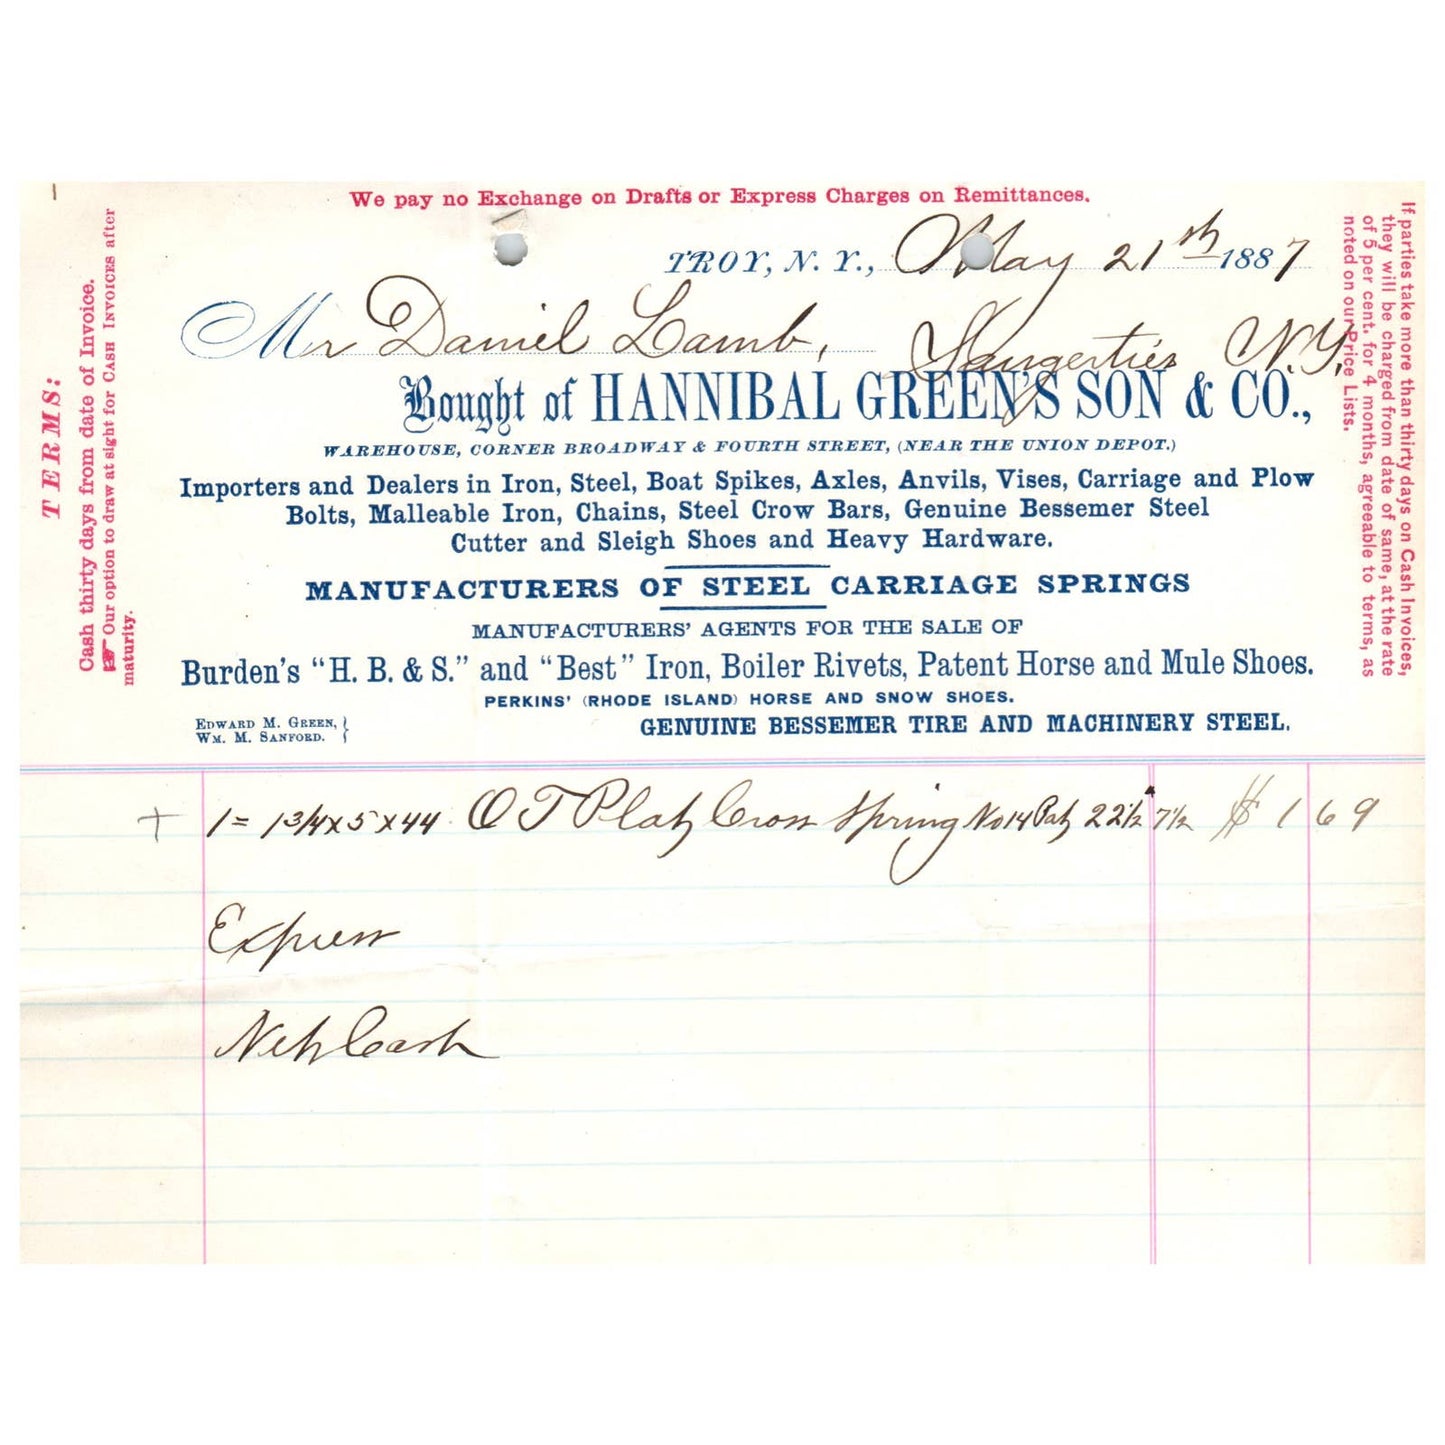 We pay no Exchange on Drafts or Express Charges on Remittances.
TROY, N. Y., May 21st 1887
Mr Daniel Lamb, Saugerties N.Y.
Bought of HANNIBAL GREEN'S SON & CO.,
WAREHOUSE, CORNER BROADWAY & FOURTH STREET, (NEAR THE UNION DEPOT.)
Importers and Dealers in Iron, Steel, Boat Spikes, Axles, Anvils, Vises, Carriage and Plow
Bolts, Malleable Iron, Chains, Steel Crow Bars, Genuine Bessemer Steel
Cutter and Sleigh Shoes and Heavy Hardware.
MANUFACTURERS OF STEEL CARRIAGE SPRINGS
MANUFACTURERS' AGENTS FOR THE SALE OF
Burden's "H. B. & S." and "Best" Iron, Boiler Rivets, Patent Horse and Mule Shoes.
PERKINS' (RHODE ISLAND) HORSE AND SNOW SHOES.
EDWARD M. GREEN, }
WM. M. SANFORD. }
GENUINE BESSEMER TIRE AND MACHINERY STEEL.
TERMS:
Cash thirty days from date of Invoice.
☞ Our option to draw at sight for CASH INVOICES after
maturity.
If parties take more than thirty days on Cash Invoices,
they will be charged from date of same, at the rate
of 5 per cent. for 4 months, agreeable to terms, as
noted on our Price Lists.
+ 1 = 1 3/4 x 5 x 44 O T Plat Cross Spring No 14 Pat 22 1/2 7 1/2 $ 1 69
Express
Net Cash